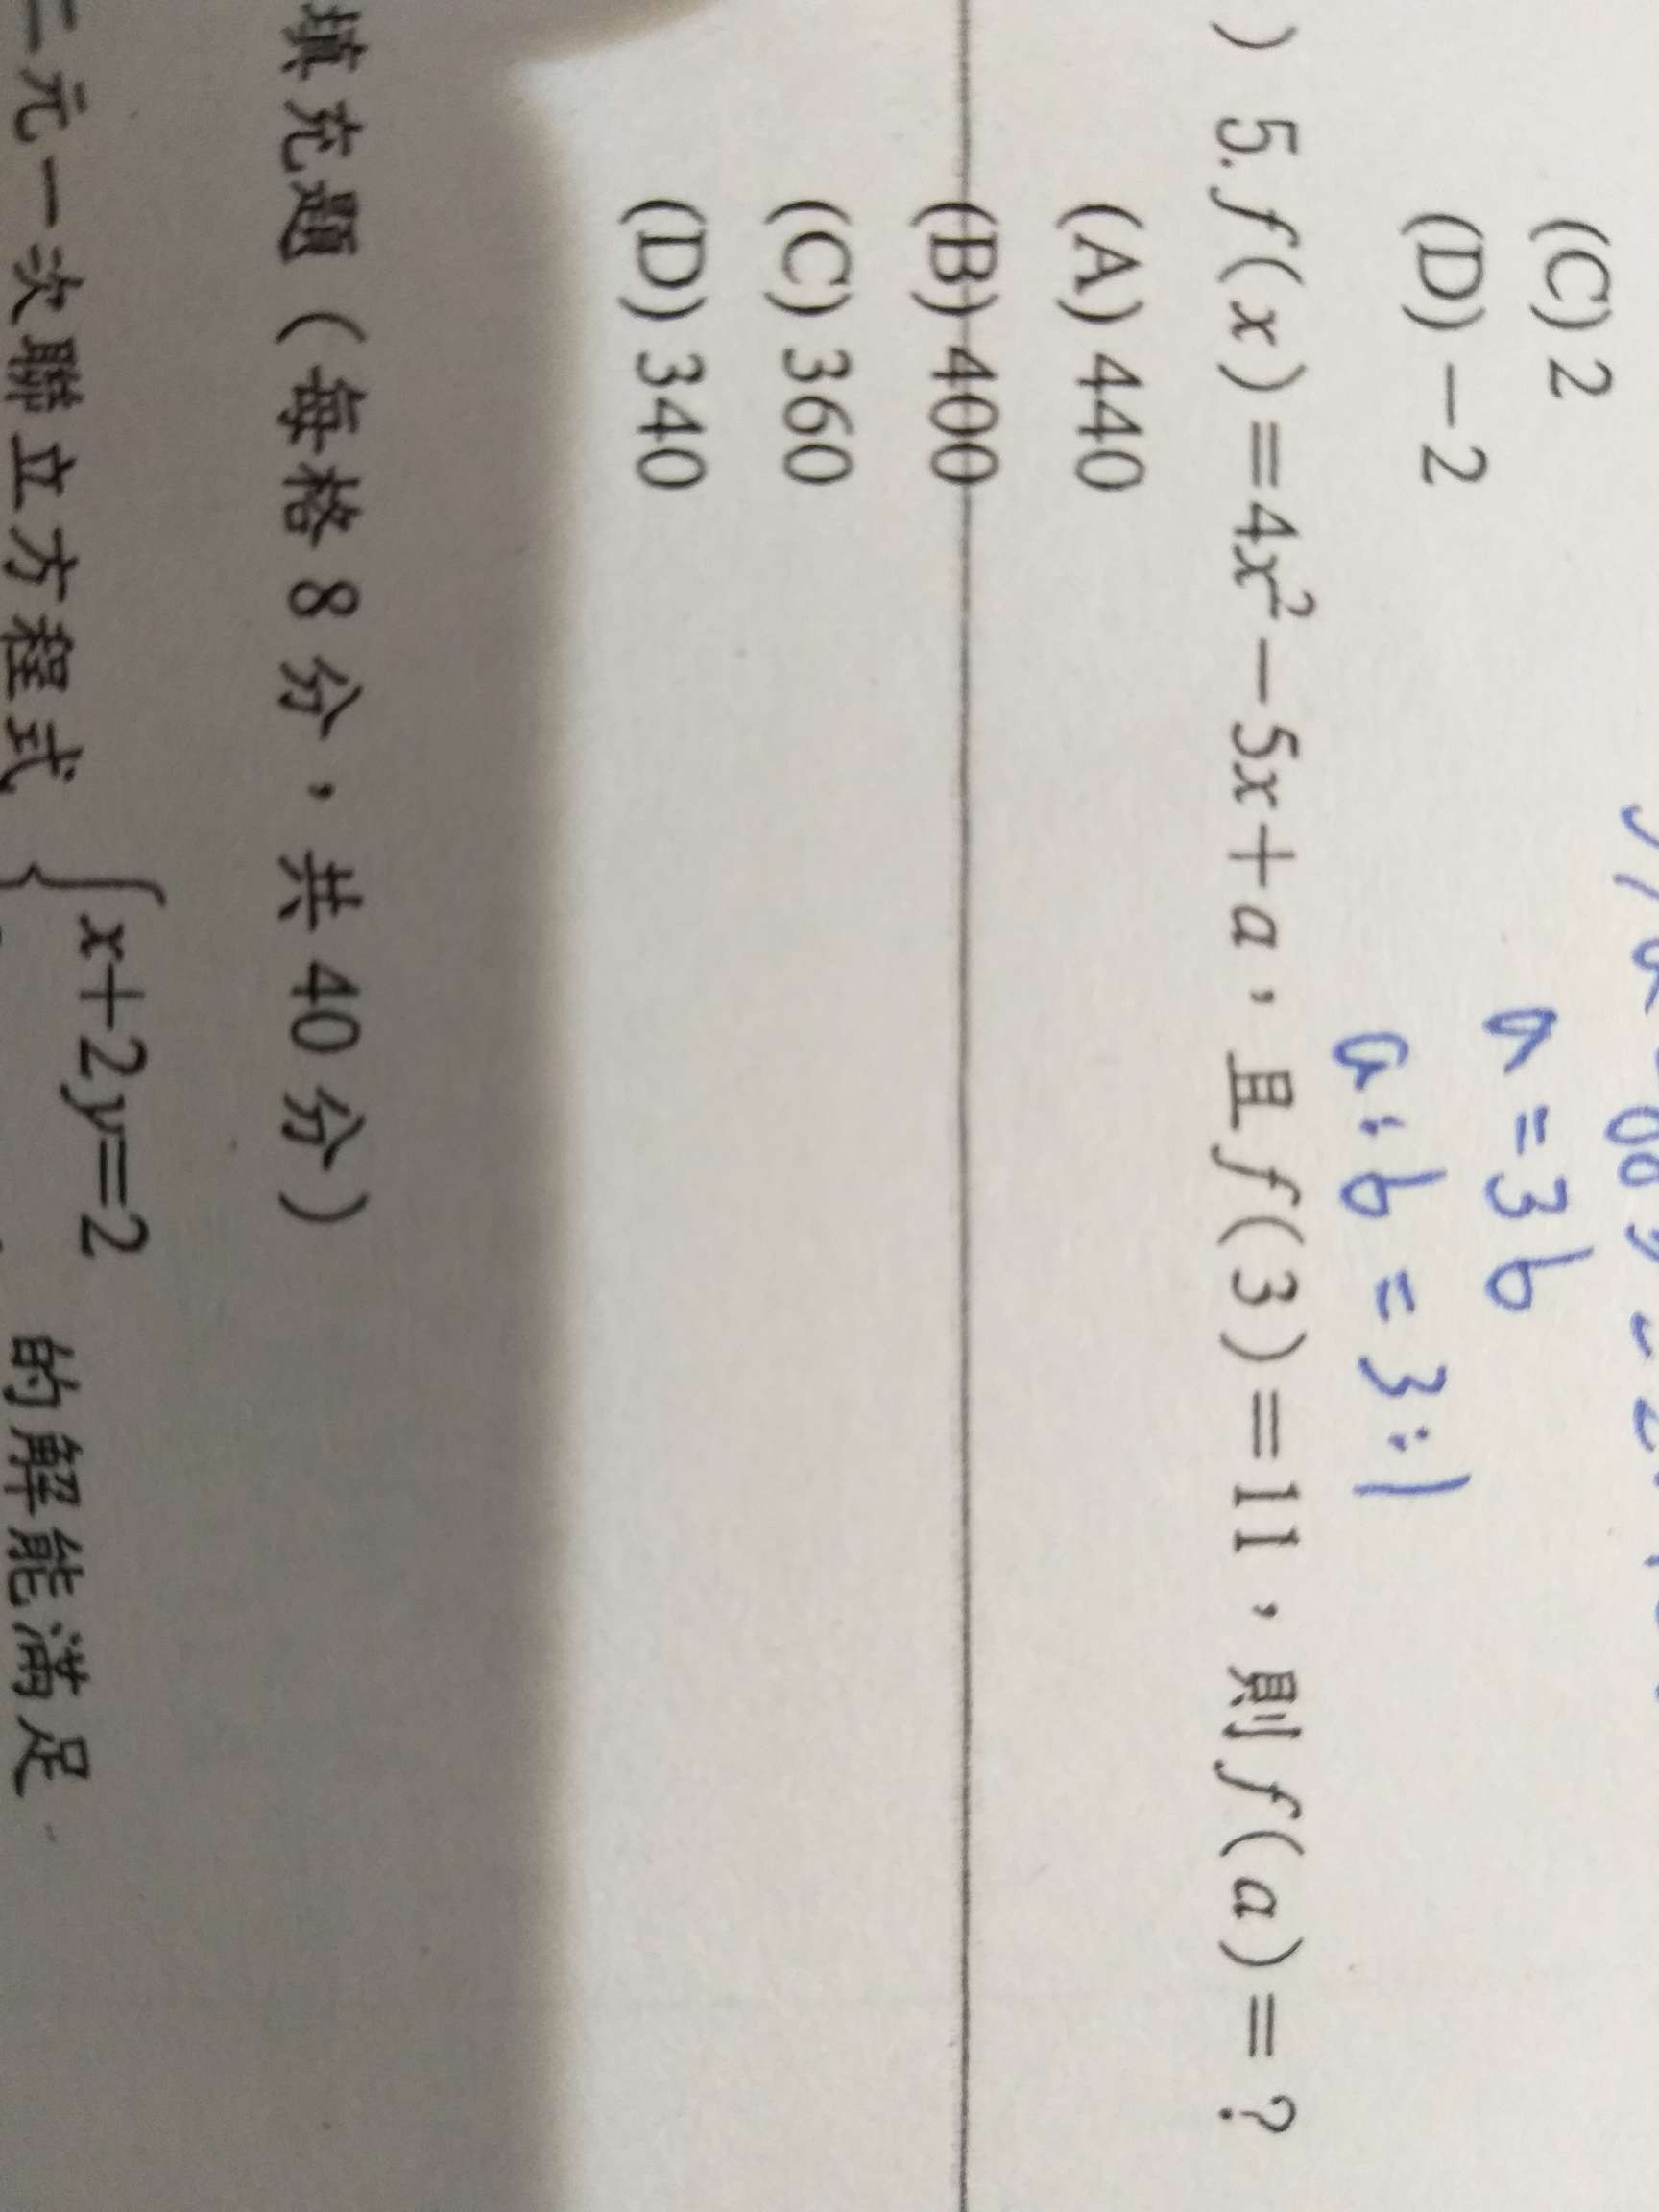 (C) 2
(D) －2
a = 3b
a : b = 3 : 1
) 5. f(x)=4x²－5x＋a，且 f(3)=11，則 f(a)=？
(A) 440
(B) 400
(C) 360
(D) 340
填充題（每格 8 分，共 40 分）
二元一次聯立方程式 { x+2y=2 的解能滿足